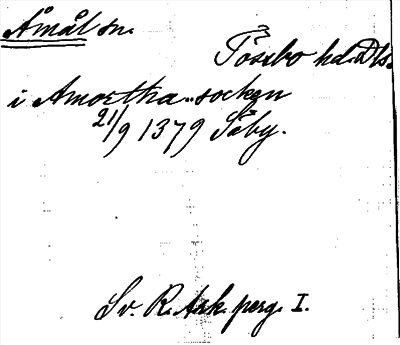 Åmål sn.
Tössbo hd. Dls.
i Amordha socken
21/9 1379 Säby.
Sv. R. Ark. perg. I.